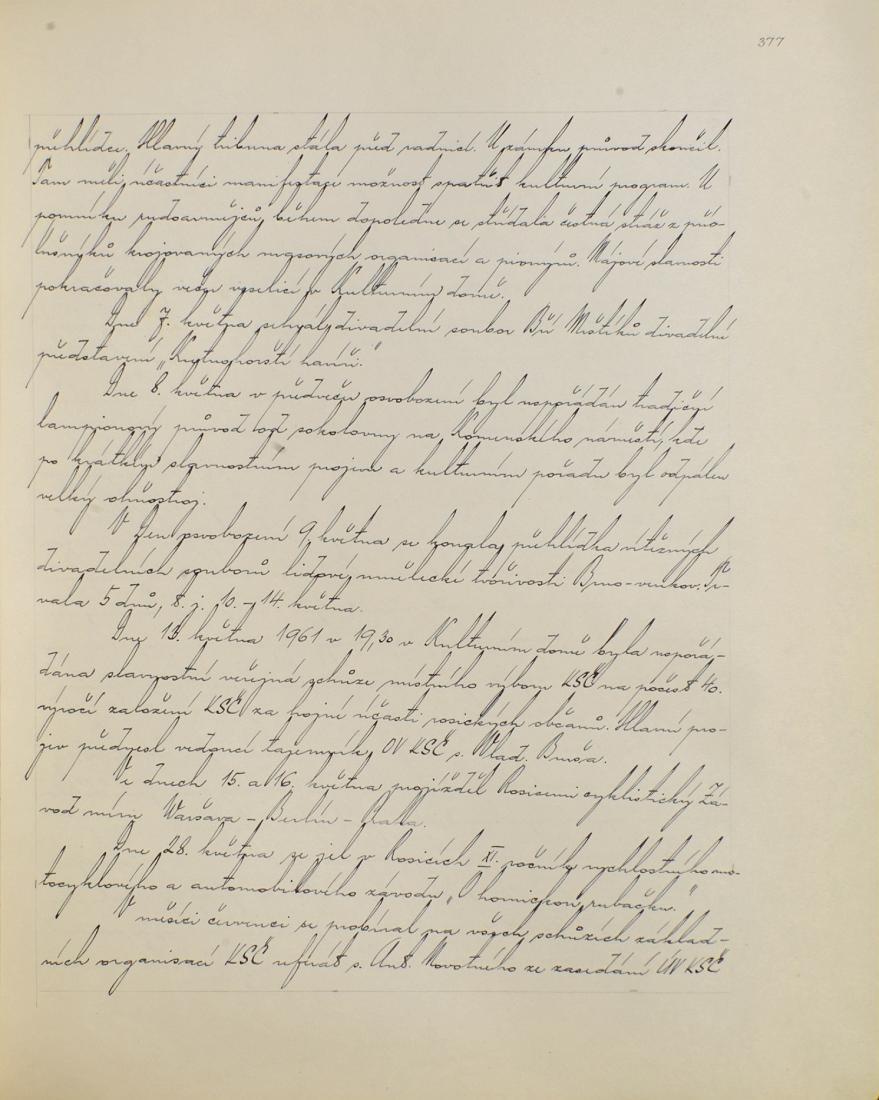 377
přehlídce. Hlavný tribuna stála před radnicí. U zámku průvod skončil.
Tam měli účastníci manifestace možnost spatřit kulturní program. U
pomníku rudoarmějců během dopoledne se střídala čestná stráž z pří-
lušníků krojovaných masových organisací a pionýrů. Májové slavnosti
pokračovaly večer veselicí v Kulturním domě.
Dne 7. května sehrál divadelní soubor Bří Mrštíků divadelní
představení „Kutnohorští havíři."
Dne 8. května v předvečer osvobození byl uspořádán tradiční
lampionový průvod od sokolovny na Komenského náměstí, kde
po krátkém slavnostním projevu a kulturním pořadu byl odpálen
velký ohňostroj.
V Den osvobození 9. května se konala přehlídka vítězných
divadelních souborů lidové umělecké tvořivosti Brno-venkov. Tr-
vala 5 dnů, t. j. 10. - 14. května.
Dne 13. května 1961 v 19,30 v Kulturním domě byla uspořá-
dána slavnostní veřejná schůze místního výboru KSČ na počest 40.
výročí založení KSČ za hojné účasti rosických občanů. Hlavní pro-
jev přednesl vedoucí tajemník OV KSČ s. Vlad.
Ve dnech 15. a 16. května projížděl Rosicemi cyklistický Zá-
vod míru Waršava - Berlín - Praha.
Dne 28. května se jel v Rosicích XI. ročník rychlostního mo-
tocyklového a automobilového závodu „O hornickou rubačku."
V měsíci červenci se probíral na všech schůzích základ-
ních organisací KSČ referát s. Ant. Novotného ze zasedání ÚV KSČ